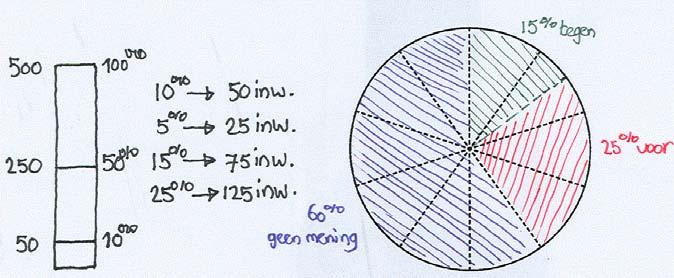 500 100%
250 50%
50 10%
10% → 50 inw.
5% → 25 inw.
15% → 75 inw.
25% → 125 inw.
15% tegen
25% voor
60%
geen mening